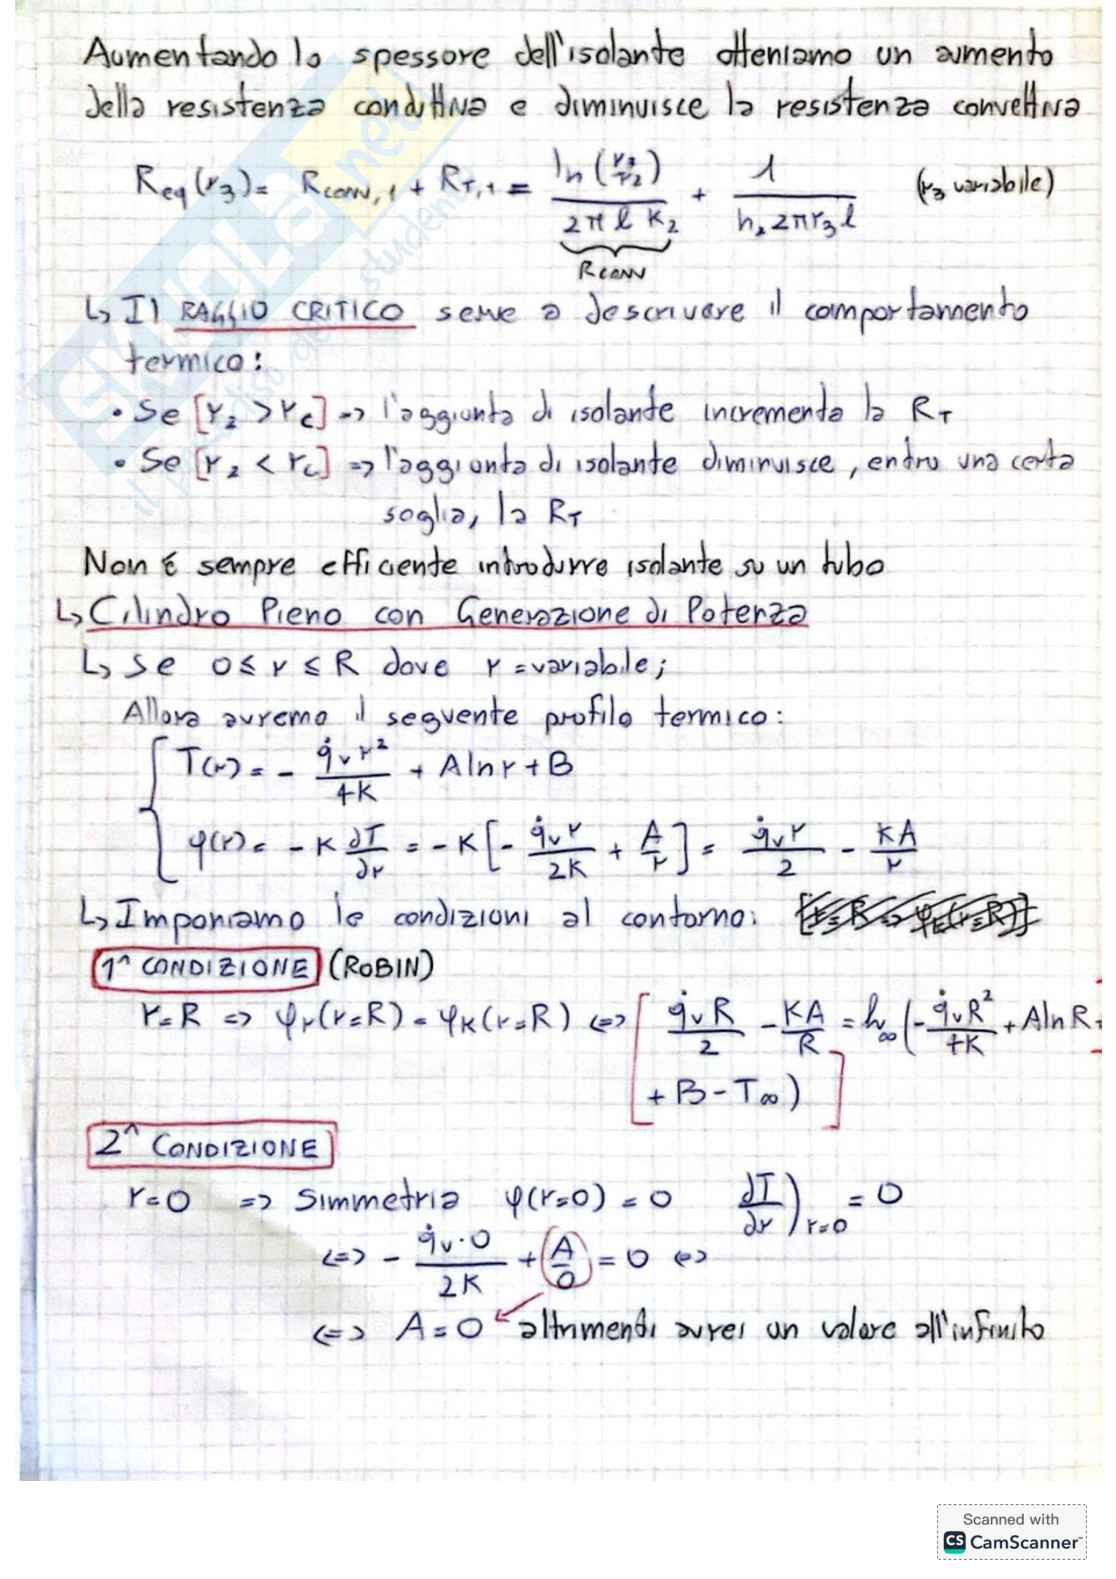 Aumentando lo spessore dell'isolante otteniamo un aumento
della resistenza conduttiva e diminuisce la resistenza convettiva
Req(r₃)= Rconv,1 + RT,1 = ln(r₃/r₂)/(2π l K₂) + 1/(h₂ 2πr₃l) (r₃ variabile)
Rconv
↳ Il RAGGIO CRITICO serve a descrivere il comportamento
termico:
• Se [r₂ > rc] => l'aggiunta di isolante incrementa la RT
• Se [r₂ < rc] => l'aggiunta di isolante diminuisce, entro una certa
soglia, la RT
Non è sempre efficiente introdurre isolante su un tubo
↳ Cilindro Pieno con Generazione di Potenza
↳ Se 0 ≤ r ≤ R dove r = variabile;
Allora avremo il seguente profilo termico:
T(r) = - q̇v r²/4K + A ln r + B
φ(r) = - K ∂T/∂r = - K [- q̇v r/2K + A/r] = q̇v r/2 - KA/r
↳ Imponiamo le condizioni al contorno:
1^ CONDIZIONE (ROBIN)
r=R => φr(r=R) = φK(r=R) <=> [ q̇v R/2 - KA/R = h∞ (- q̇v R²/4K + A ln R +
+ B - T∞) ]
2^ CONDIZIONE
r=0 => Simmetria φ(r=0) = 0 ∂T/∂r)r=0 = 0
<=> - q̇v·0/2K + A/0 = 0 <=>
<=> A=0 altrimenti avrei un valore all'infinito
skuola.net
il paradiso dello studente
Scanned with
CS CamScanner